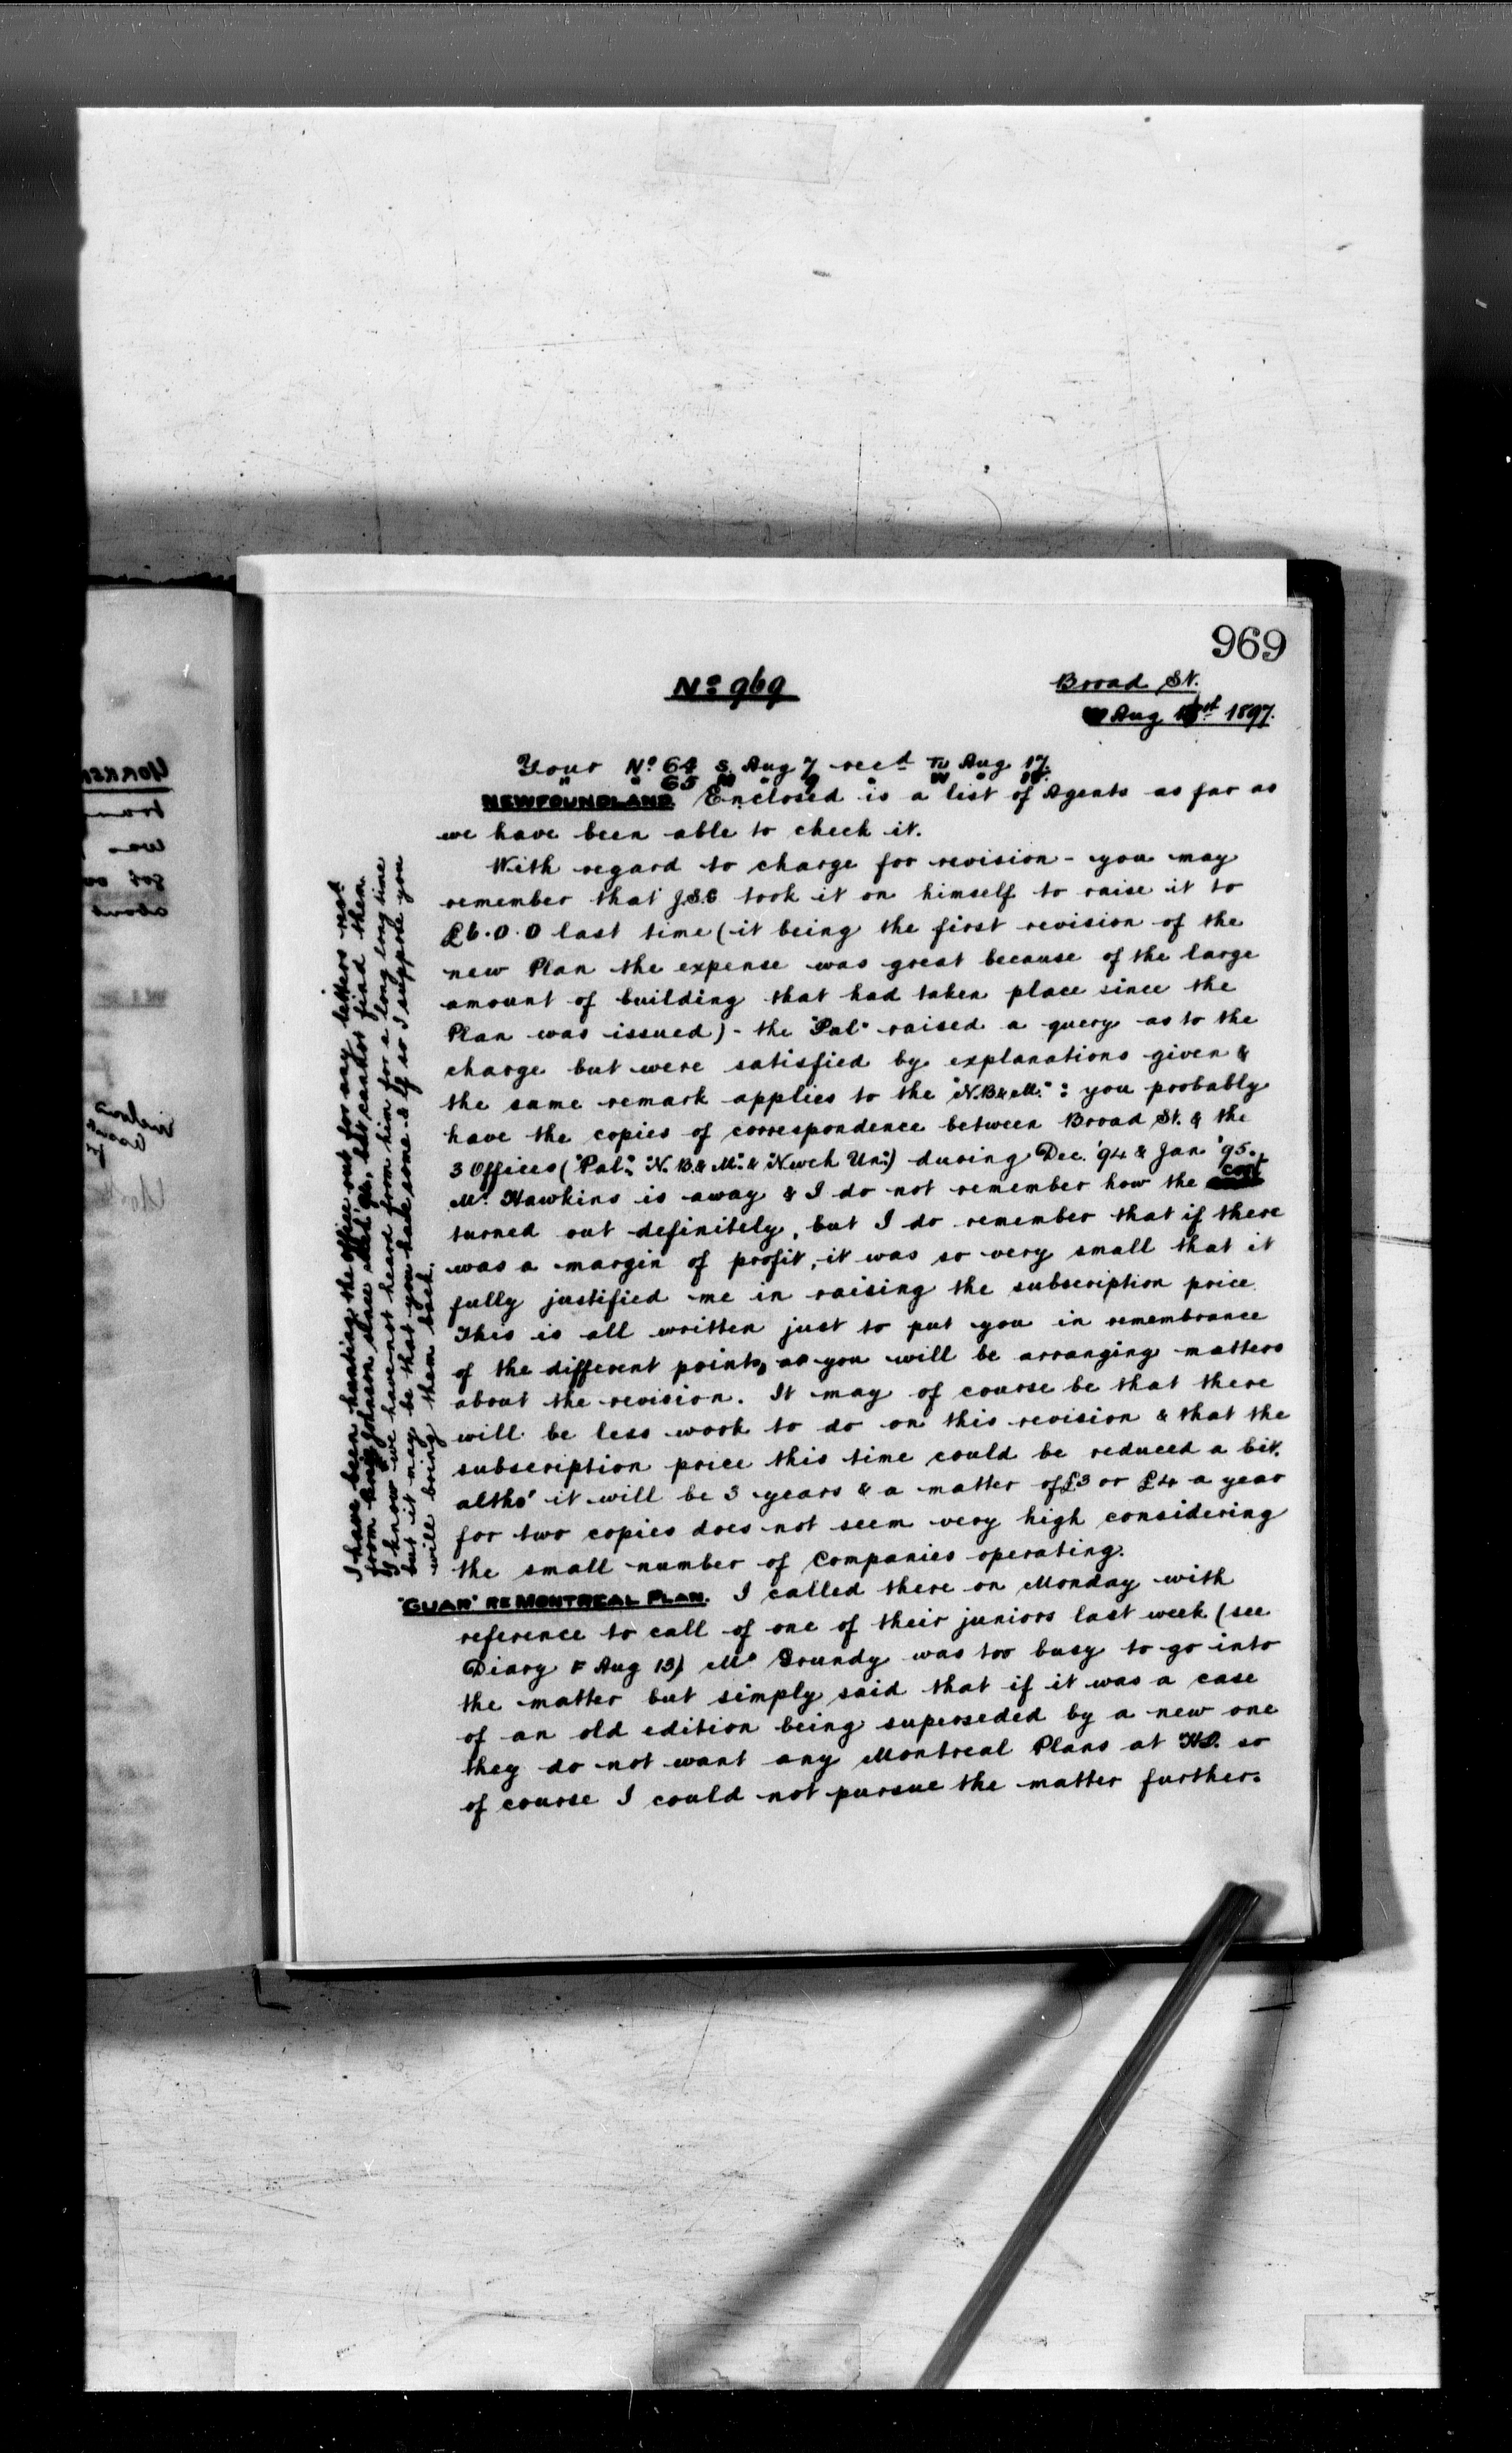 969
No 969
Broad St.
Aug 1897.
Your No 64 S. Aug 7 recd Tu Aug 17.
" " 65 " 9 " W "
NEWFOUNDLAND. Enclosed is a list of Agents as far as
we have been able to check it.
With regard to charge for revision - you may
remember that J.S.C took it on himself to raise it to
£6.0.0 last time (it being the first revision of the
new Plan the expense was great because of the large
amount of building that had taken place since the
Plan was issued) - the "Pal" raised a query as to the
charge but were satisfied by explanations given &
the same remark applies to the "N.B&M.": you probably
have the copies of correspondence between Broad St. & the
3 Offices ("Pal", "N.B.& M." & "Nwch Un.") during Dec. '94 & Jan '95.
Mr. Hawkins is away & I do not remember how the cost
turned out definitely, but I do remember that if there
was a margin of profit, it was so very small that it
fully justified me in raising the subscription price.
This is all written just to put you in remembrance
of the different points, as you will be arranging matters
about the revision. It may of course be that there
will be less work to do on this revision & that the
subscription price this time could be reduced a bit.
altho' it will be 3 years & a matter of £3 or £4 a year
for two copies does not seem very high considering
the small number of Companies operating.
"GUAR" RE MONTREAL PLAN. I called there on Monday with
reference to call of one of their juniors last week (see
Diary F Aug 13) Mr Grundy was too busy to go into
the matter but simply said that if it was a case
of an old edition being superseded by a new one
they do not want any Montreal Plans at H.O. so
of course I could not pursue the matter further.
I have been hunting the office out for any letters not
from Johnson since, but cannot find them.
I know we have not heard from him for a long long time
but it may be that you have some & if so I suppose you
will bring them back.